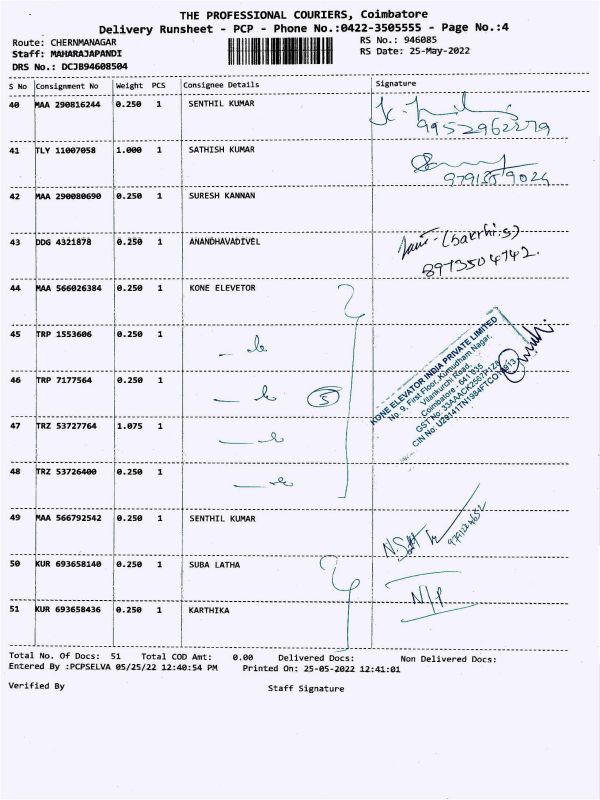 THE PROFESSIONAL COURIERS, Coimbatore
Delivery Runsheet - PCP - Phone No.:0422-3505555 - Page No.:4
Route: CHERNMANAGAR
RS No.: 946085
Staff: MAHARAJAPANDI
RS Date: 25-May-2022
DRS No.: DCJB94608504
S No Consignment No Weight PCS Consignee Details Signature
40 MAA 290816244 0.250 1 SENTHIL KUMAR
9952962279
41 TLY 11007058 1.000 1 SATHISH KUMAR
42 MAA 290080690 0.250 1 SURESH KANNAN
43 DDG 4321878 0.250 1 ANANDHAVADIVEL
8973504742.
44 MAA 566026384 0.250 1 KONE ELEVETOR
45 TRP 1553606 0.250 1
46 TRP 7177564 0.250 1 5
47 TRZ 53727764 1.075 1
48 TRZ 53726400 0.250 1
KONE ELEVATOR INDIA PRIVATE LIMITED
No. 9, First Floor, Kumudham Nagar,
Vilankurchi Road,
Coimbatore - 641 035
49 MAA 566792542 0.250 1 SENTHIL KUMAR
50 KUR 693658140 0.250 1 SUBA LATHA
N/P
51 KUR 693658436 0.250 1 KARTHIKA
Total No. Of Docs: 51 Total COD Amt: 0.00 Delivered Docs: Non Delivered Docs:
Entered By :PCPSELVA 05/25/22 12:40:54 PM Printed On: 25-05-2022 12:41:01
Verified By Staff Signature